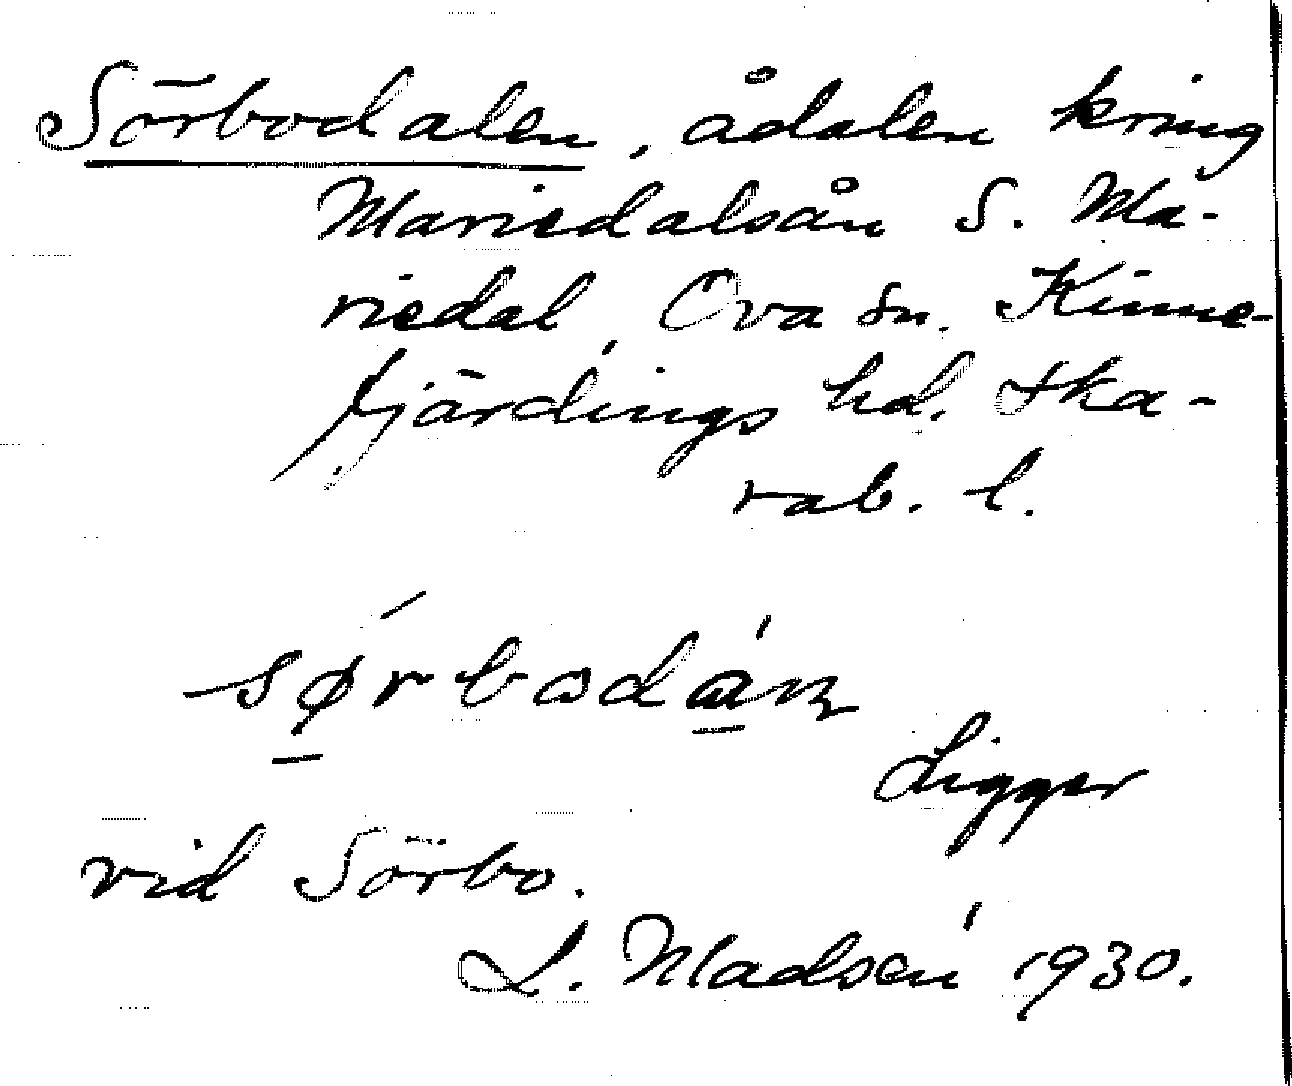 Sörbodalen, ådalen kring
Mariedalsån S. Ma-
riedal, Ova sn. Kinne-
fjärdings hd. Ska-
rab. l.
Ligger
vid Sörbo.
L. Madsén 1930.